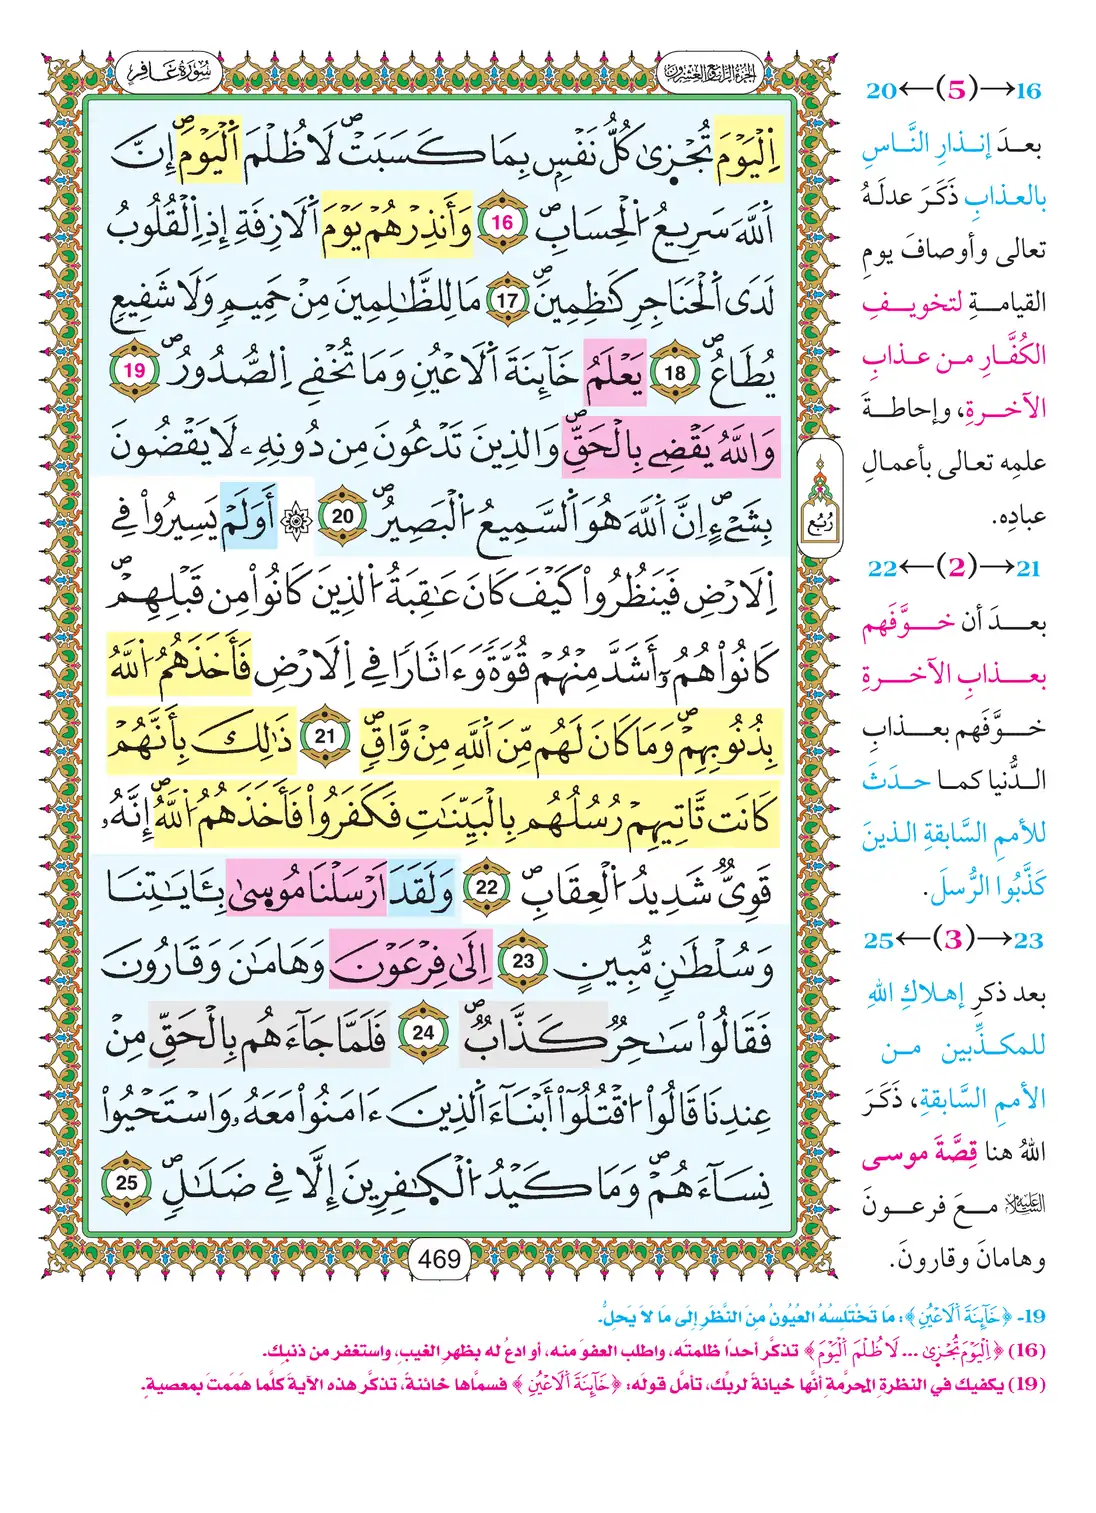 سُورَةُ غَافِرٍ
الجزء الرابع والعشرون
اِ۬لْيَوْمَ تُجْز۪ىٰ كُلُّ نَفْسِۢ بِمَا كَسَبَتْۖ لَا ظُلْمَ اَ۬لْيَوْمَۖ إِنَّ
اَ۬للَّهَ سَرِيعُ اُ۬لْحِسَابِۖ 16 وَأَنذِرْهُمْ يَوْمَ اَ۬لَازِفَةِ إِذِ اِ۬لْقُلُوبُ
لَدَى اَ۬لْحَنَاجِرِ كَٰظِمِينَۖ 17 مَا لِلظَّٰلِمِينَ مِنْ حَمِيمٖ وَلَا شَفِيعٖ
يُطَاعُۖ 18 يَعْلَمُ خَآئِنَةَ اَ۬لَاعْيُنِ وَمَا تُخْفِے اِ۬لصُّدُورُۖ 19
وَاللَّهُ يَقْضِے بِالْحَقِّۖ وَالذِينَ تَدْعُونَ مِن دُونِهِۦ لَا يَقْضُونَ
بِشَےْءٍۖ اِنَّ اَ۬للَّهَ هُوَ اَ۬لسَّمِيعُ اُ۬لْبَصِيرُۖ 20 ۞ أَوَلَمْ يَسِيرُواْ فِے
اِ۬لَارْضِ فَيَنظُرُواْ كَيْفَ كَانَ عَٰقِبَةُ اُ۬لذِينَ كَانُواْ مِن قَبْلِهِمْۖ
كَانُواْ هُمُۥٓ أَشَدَّ مِنْهُمْ قُوَّةٗ وَءَاثَارٗا فِے اِ۬لَارْضِ فَأَخَذَهُمُ اُ۬للَّهُ
بِذُنُوبِهِمْۖ وَمَا كَانَ لَهُم مِّنَ اَ۬للَّهِ مِنْ وَّاقٖۖ 21 ذَٰلِكَ بِأَنَّهُمْ
كَانَت تَّاتِيهِمْ رُسُلُهُم بِالْبَيِّنَٰتِ فَكَفَرُواْ فَأَخَذَهُمُ اُ۬للَّهُۖ إِنَّهُۥ
قَوِيّٞ شَدِيدُ اُ۬لْعِقَابِۖ 22 وَلَقَدَ اَرْسَلْنَا مُوس۪ىٰ بِـَٔايَٰتِنَا
وَسُلْطَٰنٖ مُّبِينٍ 23 اِلَىٰ فِرْعَوْنَ وَهَٰمَٰنَ وَقَٰرُونَ
فَقَالُواْ سَٰحِرٞ كَذَّابٞۖ 24 فَلَمَّا جَآءَهُم بِالْحَقِّ مِنْ
عِندِنَا قَالُواْ اُ۟قْتُلُوٓاْ أَبْنَآءَ اَ۬لذِينَ ءَامَنُواْ مَعَهُۥ وَاسْتَحْيُواْ
نِسَآءَهُمْۖ وَمَا كَيْدُ اُ۬لْكٰ۪فِرِينَ إِلَّا فِے ضَلَٰلٖۖ 25
رُبُع
469
16→(5)←20
بعدَ إنذارِ النَّاسِ
بالعذابِ ذَكَرَ عدلَهُ
تعالى وأوصافَ يومِ
القيامةِ لتخويفِ
الكُفَّارِ من عذابِ
الآخرةِ، وإحاطةَ
علمِه تعالى بأعمالِ
عبادِه.
21→(2)←22
بعدَ أن خوَّفَهم
بعذابِ الآخرةِ
خوَّفَهم بعذابِ
الدُّنيا كما حدَثَ
للأممِ السَّابقةِ الذينَ
كَذَّبُوا الرُّسلَ.
23→(3)←25
بعد ذكرِ إهلاكِ اللهِ
للمكذِّبين من
الأممِ السَّابقةِ، ذَكَرَ
اللهُ هنا قِصَّةَ موسى
عليه السلام معَ فرعونَ
وهامانَ وقارونَ.
19- ﴿خَآئِنَةَ اَ۬لَاعْيُنِ﴾: مَا تَخْتَلِسُهُ العُيُونُ مِنَ النَّظَرِ إِلَى مَا لاَ يَحِلُّ.
(16) ﴿اِ۬لْيَوْمَ تُجْز۪ىٰ ... لَا ظُلْمَ اَ۬لْيَوْمَ﴾ تذكَّر أحداً ظلمتَه، واطلب العفوَ منه، أو ادعُ له بظهرِ الغيبِ، واستغفر من ذنبِك.
(19) يكفيك في النظرةِ المحرَّمةِ أنَّها خيانةً لربِّك، تأمَّل قولَه: ﴿خَآئِنَةَ اَ۬لَاعْيُنِ﴾ فسمَّاها خائنةً، تذكَّر هذه الآيةَ كلَّما هَمَمتَ بمعصيةٍ.